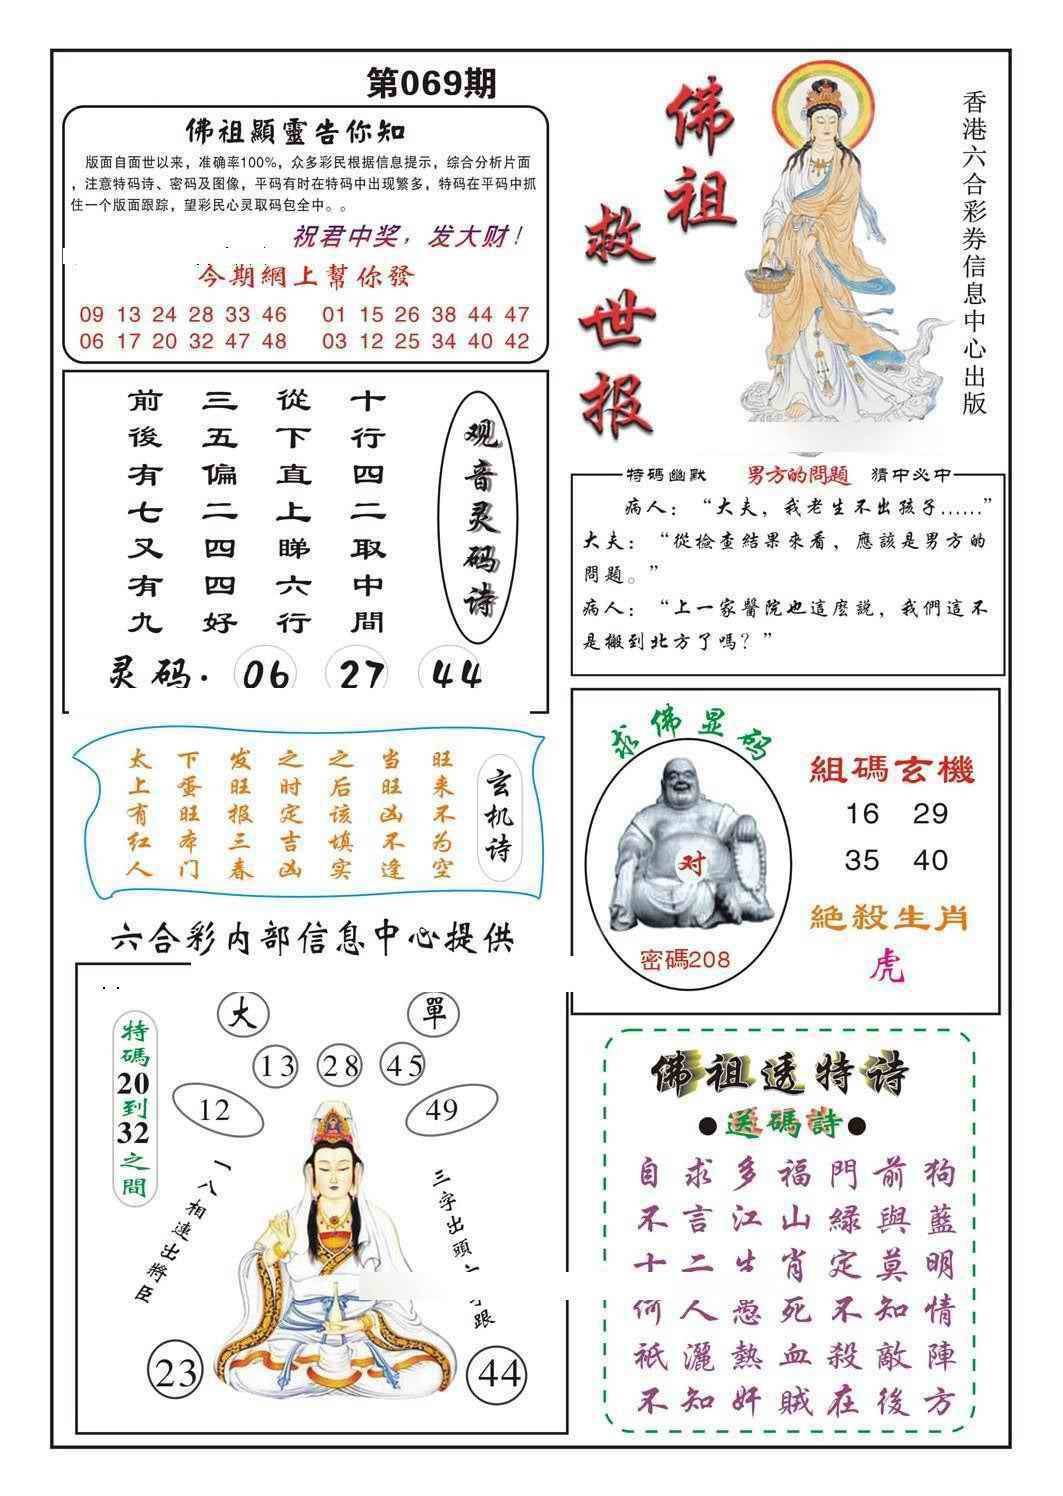 第069期
佛祖顯靈告你知
版面自面世以来，准确率100%，众多彩民根据信息提示，综合分析片面
，注意特码诗、密码及图像，平码有时在特码中出现繁多，特码在平码中抓
住一个版面跟踪，望彩民心灵取码包全中。。
祝君中奖，发大财！
今期網上幫你發
09 13 24 28 33 46 01 15 26 38 44 47
06 17 20 32 47 48 03 12 25 34 40 42
佛祖
救世报
香港六合彩券信息中心出版
前三從十
後五下行
有偏直四
七二上二
又四睇取
有四六中
九好行間
观音灵码诗
灵码. 06 27 44
特碼幽默 男方的問題 猜中必中
病人：“大夫，我老生不出孩子......”
大夫：“從檢查結果來看，應該是男方的
問題。”
病人：“上一家醫院也這麼説，我們這不
是搬到北方了嗎？”
太下发之之当旺
上蛋旺时后旺来
有旺报定该凶不
红本三吉填不为
人门春凶实逢空
玄机诗
求佛显码
对
密碼208
組碼玄機
16 29
35 40
絕殺生肖
虎
六合彩内部信息中心提供
特碼20到32之間
大 單
13 28 45
12 49
一八相連出將臣
三字出頭
跟
23 44
佛祖透特诗
●送碼詩●
自求多福門前狗
不言江山綠與藍
十二生肖定莫明
何人愚死不知情
祇灑熱血殺敵陣
不知奸賊在後方